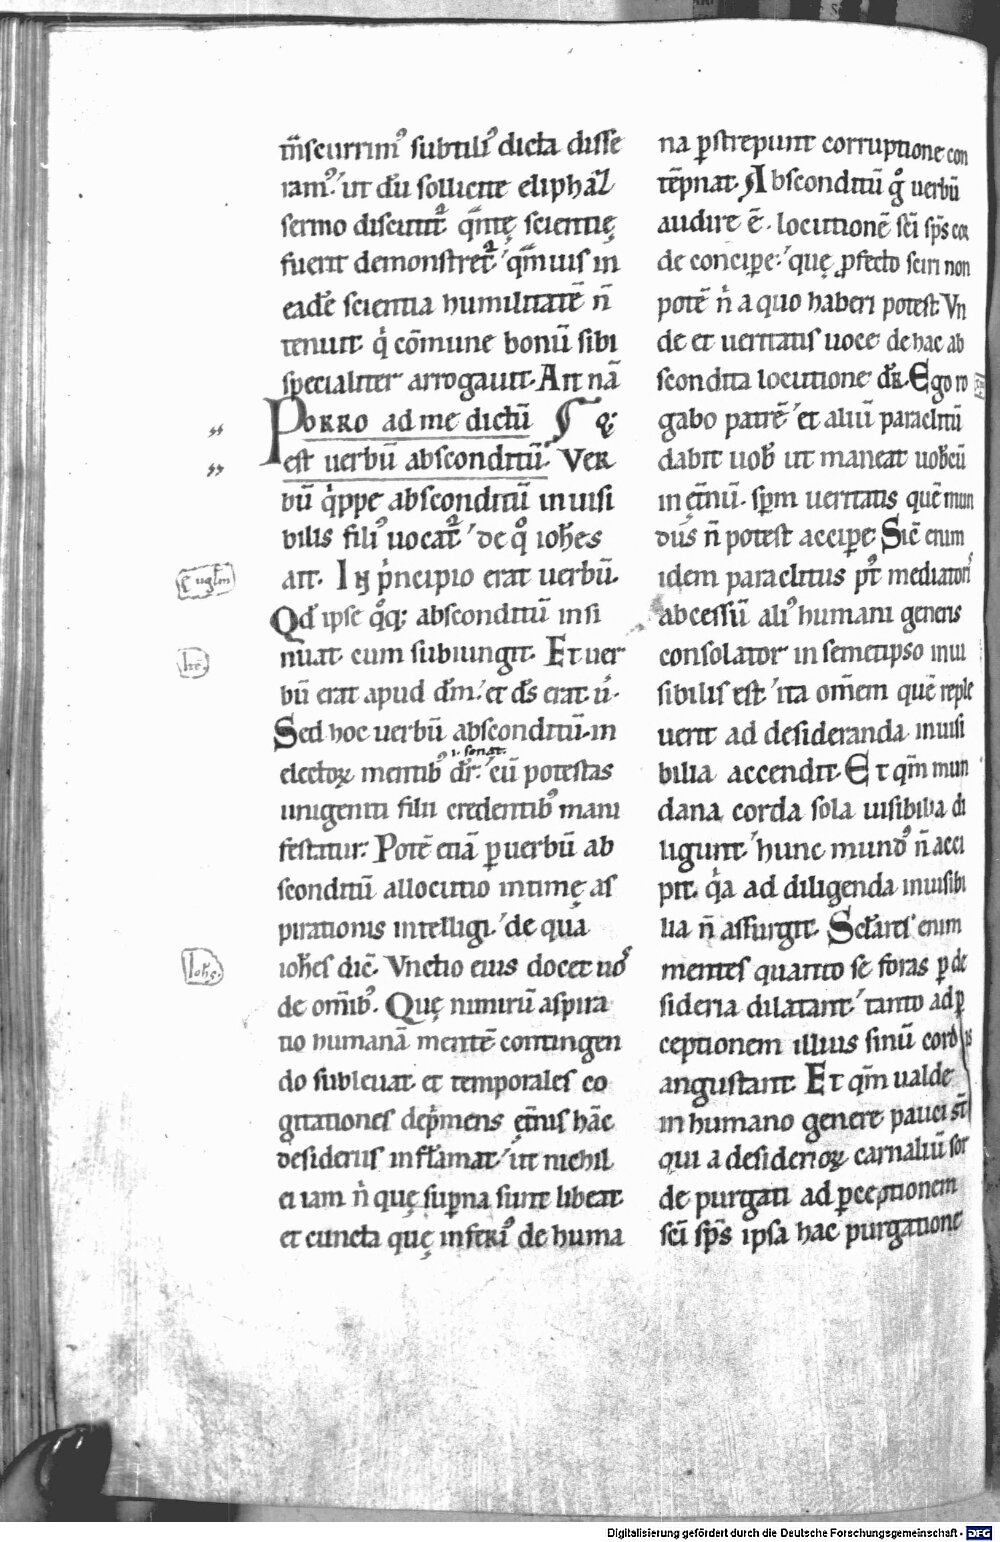 m̅scurrim᾿ subtili᾿ dicta disse
ram᾿. ut dū sollicite eliphaꝭ
sermo discutit᾿ q̅ntę scientię
fuerit demonstret᾿. q̅muis in
eadē scientia humilitatē n̄
tenuit. q̇ cōmune bonū sibi
specialiter arrogauit. Ait nā
PORRO ad me dictū
est uerbū absconditū. VER
bū q̇ppe absconditū inuisi
bilis fili᾿ uocat᾿. de q̊ ioh̄es
ait. In ṗncipio erat uerbū.
Qd̄ ipse q̊q; absconditū insi
nuat. cum subiungit. Et uer
bū erat apud dm̄. et ds̄ erat u̇.
Sed hoc uerbū absconditū. in
.i. sonat.
electoꝝ mentib᾿ dr̄. cū potestas
unigeniti filii credentib᾿ mani
festatur. Potē etiā ꝑ uerbū ab
sconditū allocutio intimę as
pirationis intelligi. de qua
ioh̄es dic̄. Vnctio eius docet uo᾿
de om̄ib᾿. Quę nimirū aspira
tio humanā mentē contingen
do subleuat. et temporales co
gitationes deṗmens ęt̄nis hāc
desideriis inflāmat. ut nichil
ei iam n̄ quę suꝑna sunt libeat.
et cuncta quę inferi᾿ de huma
na ꝑstrepunt corruptione con
tēpnat. Absconditū g̊ uerbū
audire ē. locutionē sc̄i sp̄s cor
de concipe. quę ꝓfecto sciri non
potē n̄ a quo haberi potest. Vn
de et ueritatis uoce de hac ab
scondita locutione dr̄. Ego ro
gabo patrē et aliū paraclitū
dabit uob᾿ ut maneat uob᾿cū
in ęt̄nū. spm̄ ueritatis quē mun
dus n̄ potest accipe. Sic̄ enim
idem paraclitus p᾿t mediatori᾿
abcessū ali᾿ humani generis
consolator in semetipso inui
sibilis est. ita om̄em quē reple
uerit ad desideranda inuisi
bilia accendit. Et qm̄ mun
dana corda sola uisibilia di
ligunt. hunc mund᾿ n̄ acci
pit. q̇a ad diligenda inuisibi
lia n̄ assurgit. Sc̄lares enim
mentes quanto se foras ꝑ de
sideria dilatant. tanto ad ꝑ
ceptionem illius sinū cordis
angustant. Et qm̄ ualde
in humano genere pauci st̄
qui a desiderioꝝ carnaliū sor
de purgati ad ꝑceptionem
sc̄i sp̄s ipsa hac purgatione
Ioh̄s.